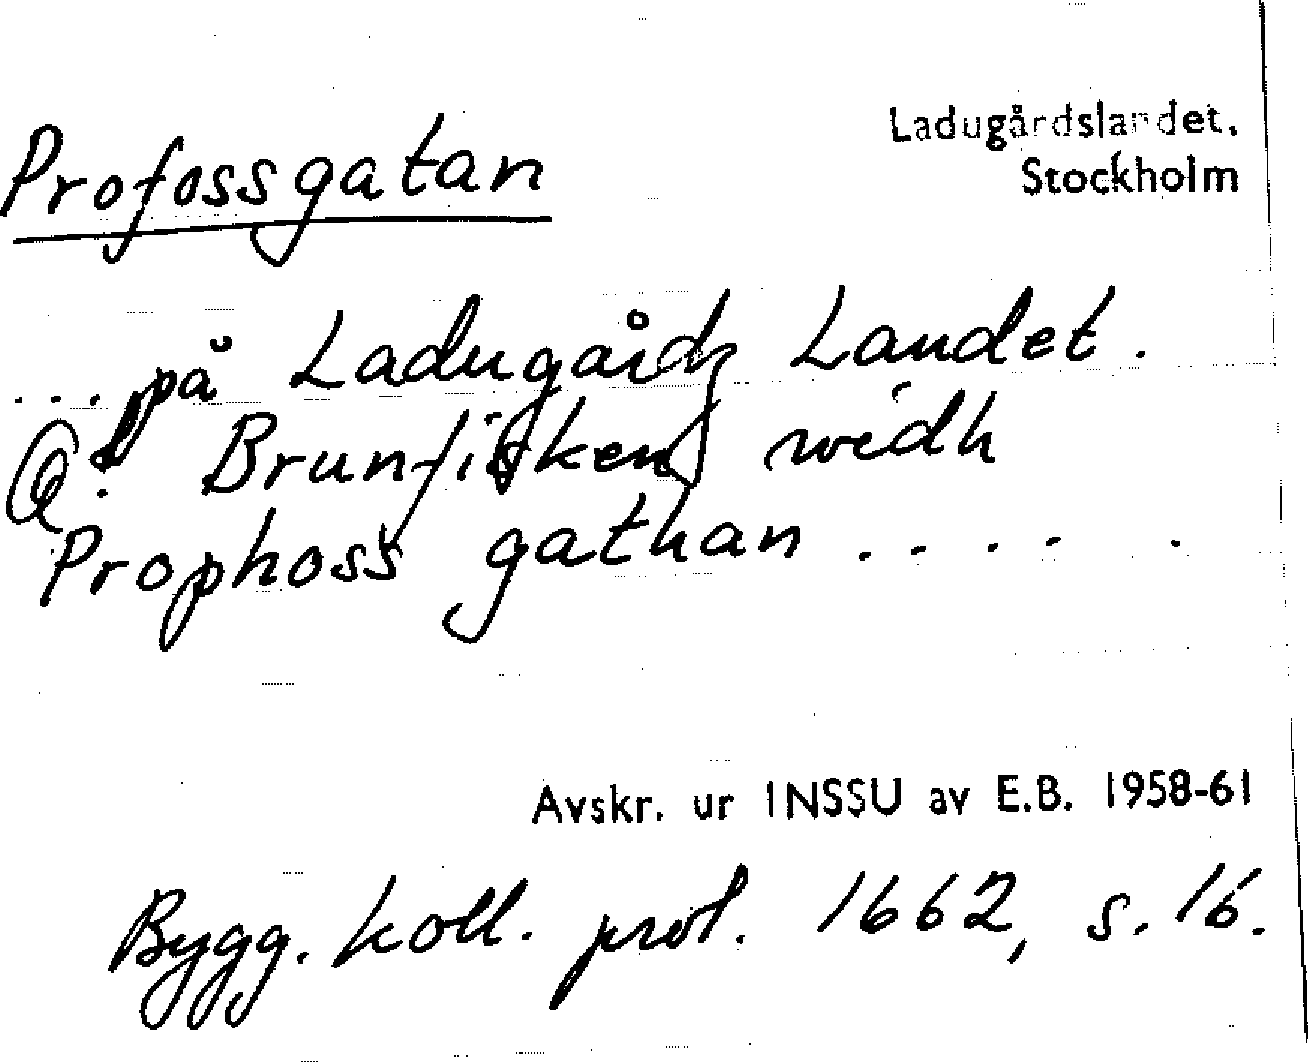 Profossgatan
Ladugårdslandet.
Stockholm
... på Ladugårdz Landet.
Q. Brunfisken widh
Prophoss gathan .....
Avskr. ur INSSU av E.B. 1958-61
Bygg. koll. prot. 1662, s. 16.